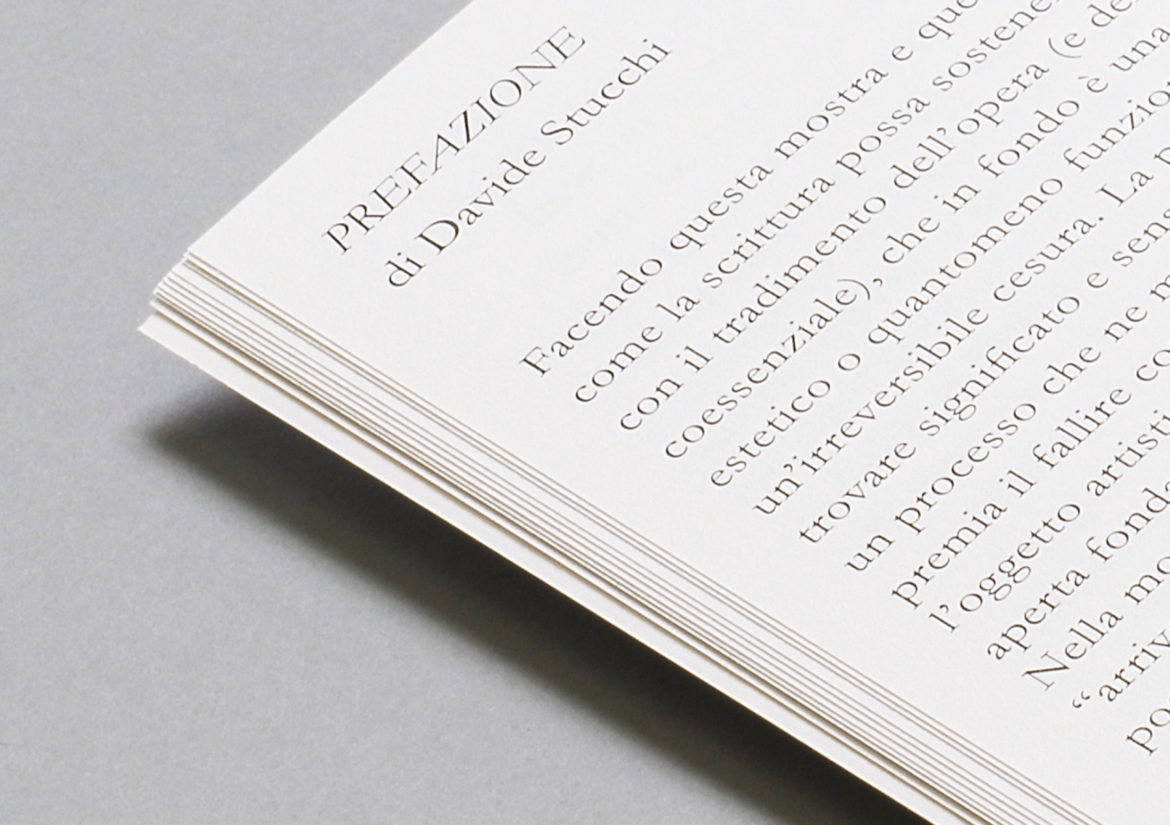 PREFAZIONE
di Davide Stucchi
Facendo questa mostra e que
come la scrittura possa sostene
con il tradimento dell’opera (e de
coessenziale), che in fondo è una
estetico o quantomeno funzio
un’irreversibile cesura. La
trovare significato e sens
un processo che ne m
premia il fallire co
l’oggetto artisti
aperta fond
Nella mo
“arriv
po